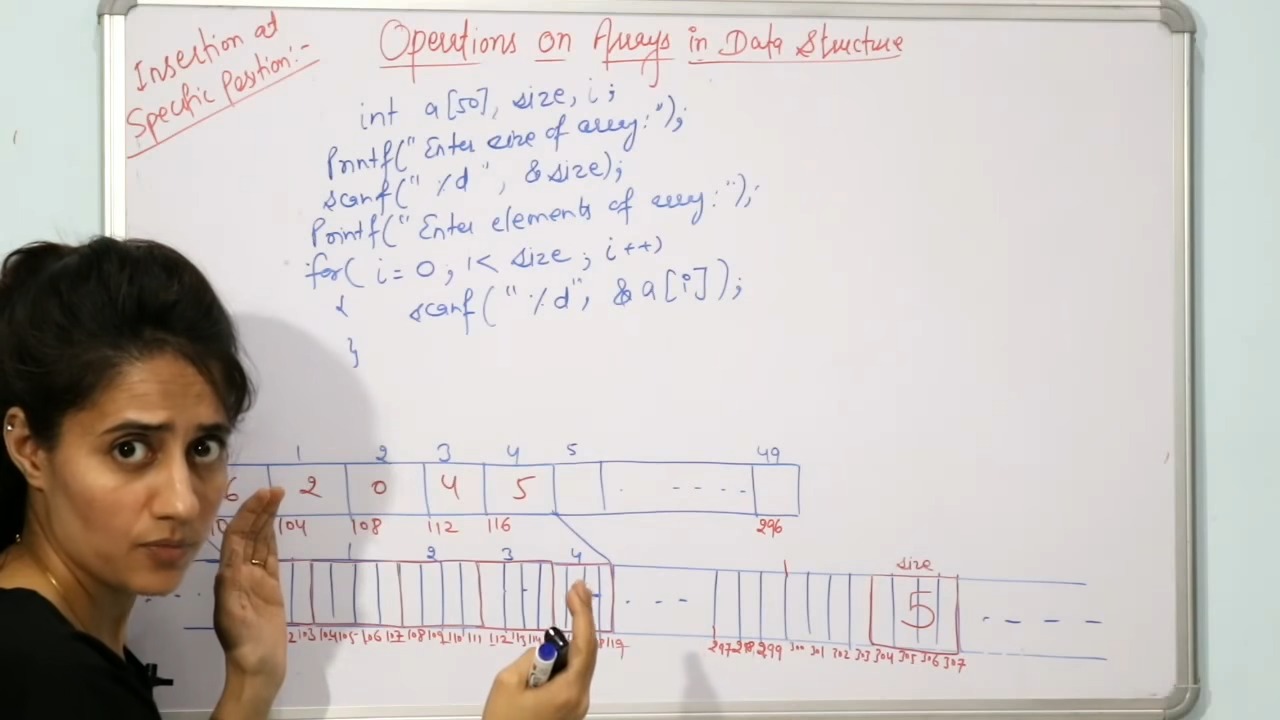 Insertion at
Specific Postion:-
Operations on Arrays in Data Structure
int a[50], size, i;
Printf("Enter size of array:");
scanf("%d", &size);
Printf("Enter elements of array:");
for( i=0; i< size; i++)
{ scanf("%d", &a[i]);
}
1 2 3 4 5 49
6 2 0 4 5 . - - - -
104 108 112 116 296
1 2 3 4 size
- - - 5 - - - -
103 104 105 106 107 108 109 110 111 112 113 119 297 298 299 300 301 302 303 304 305 306 307